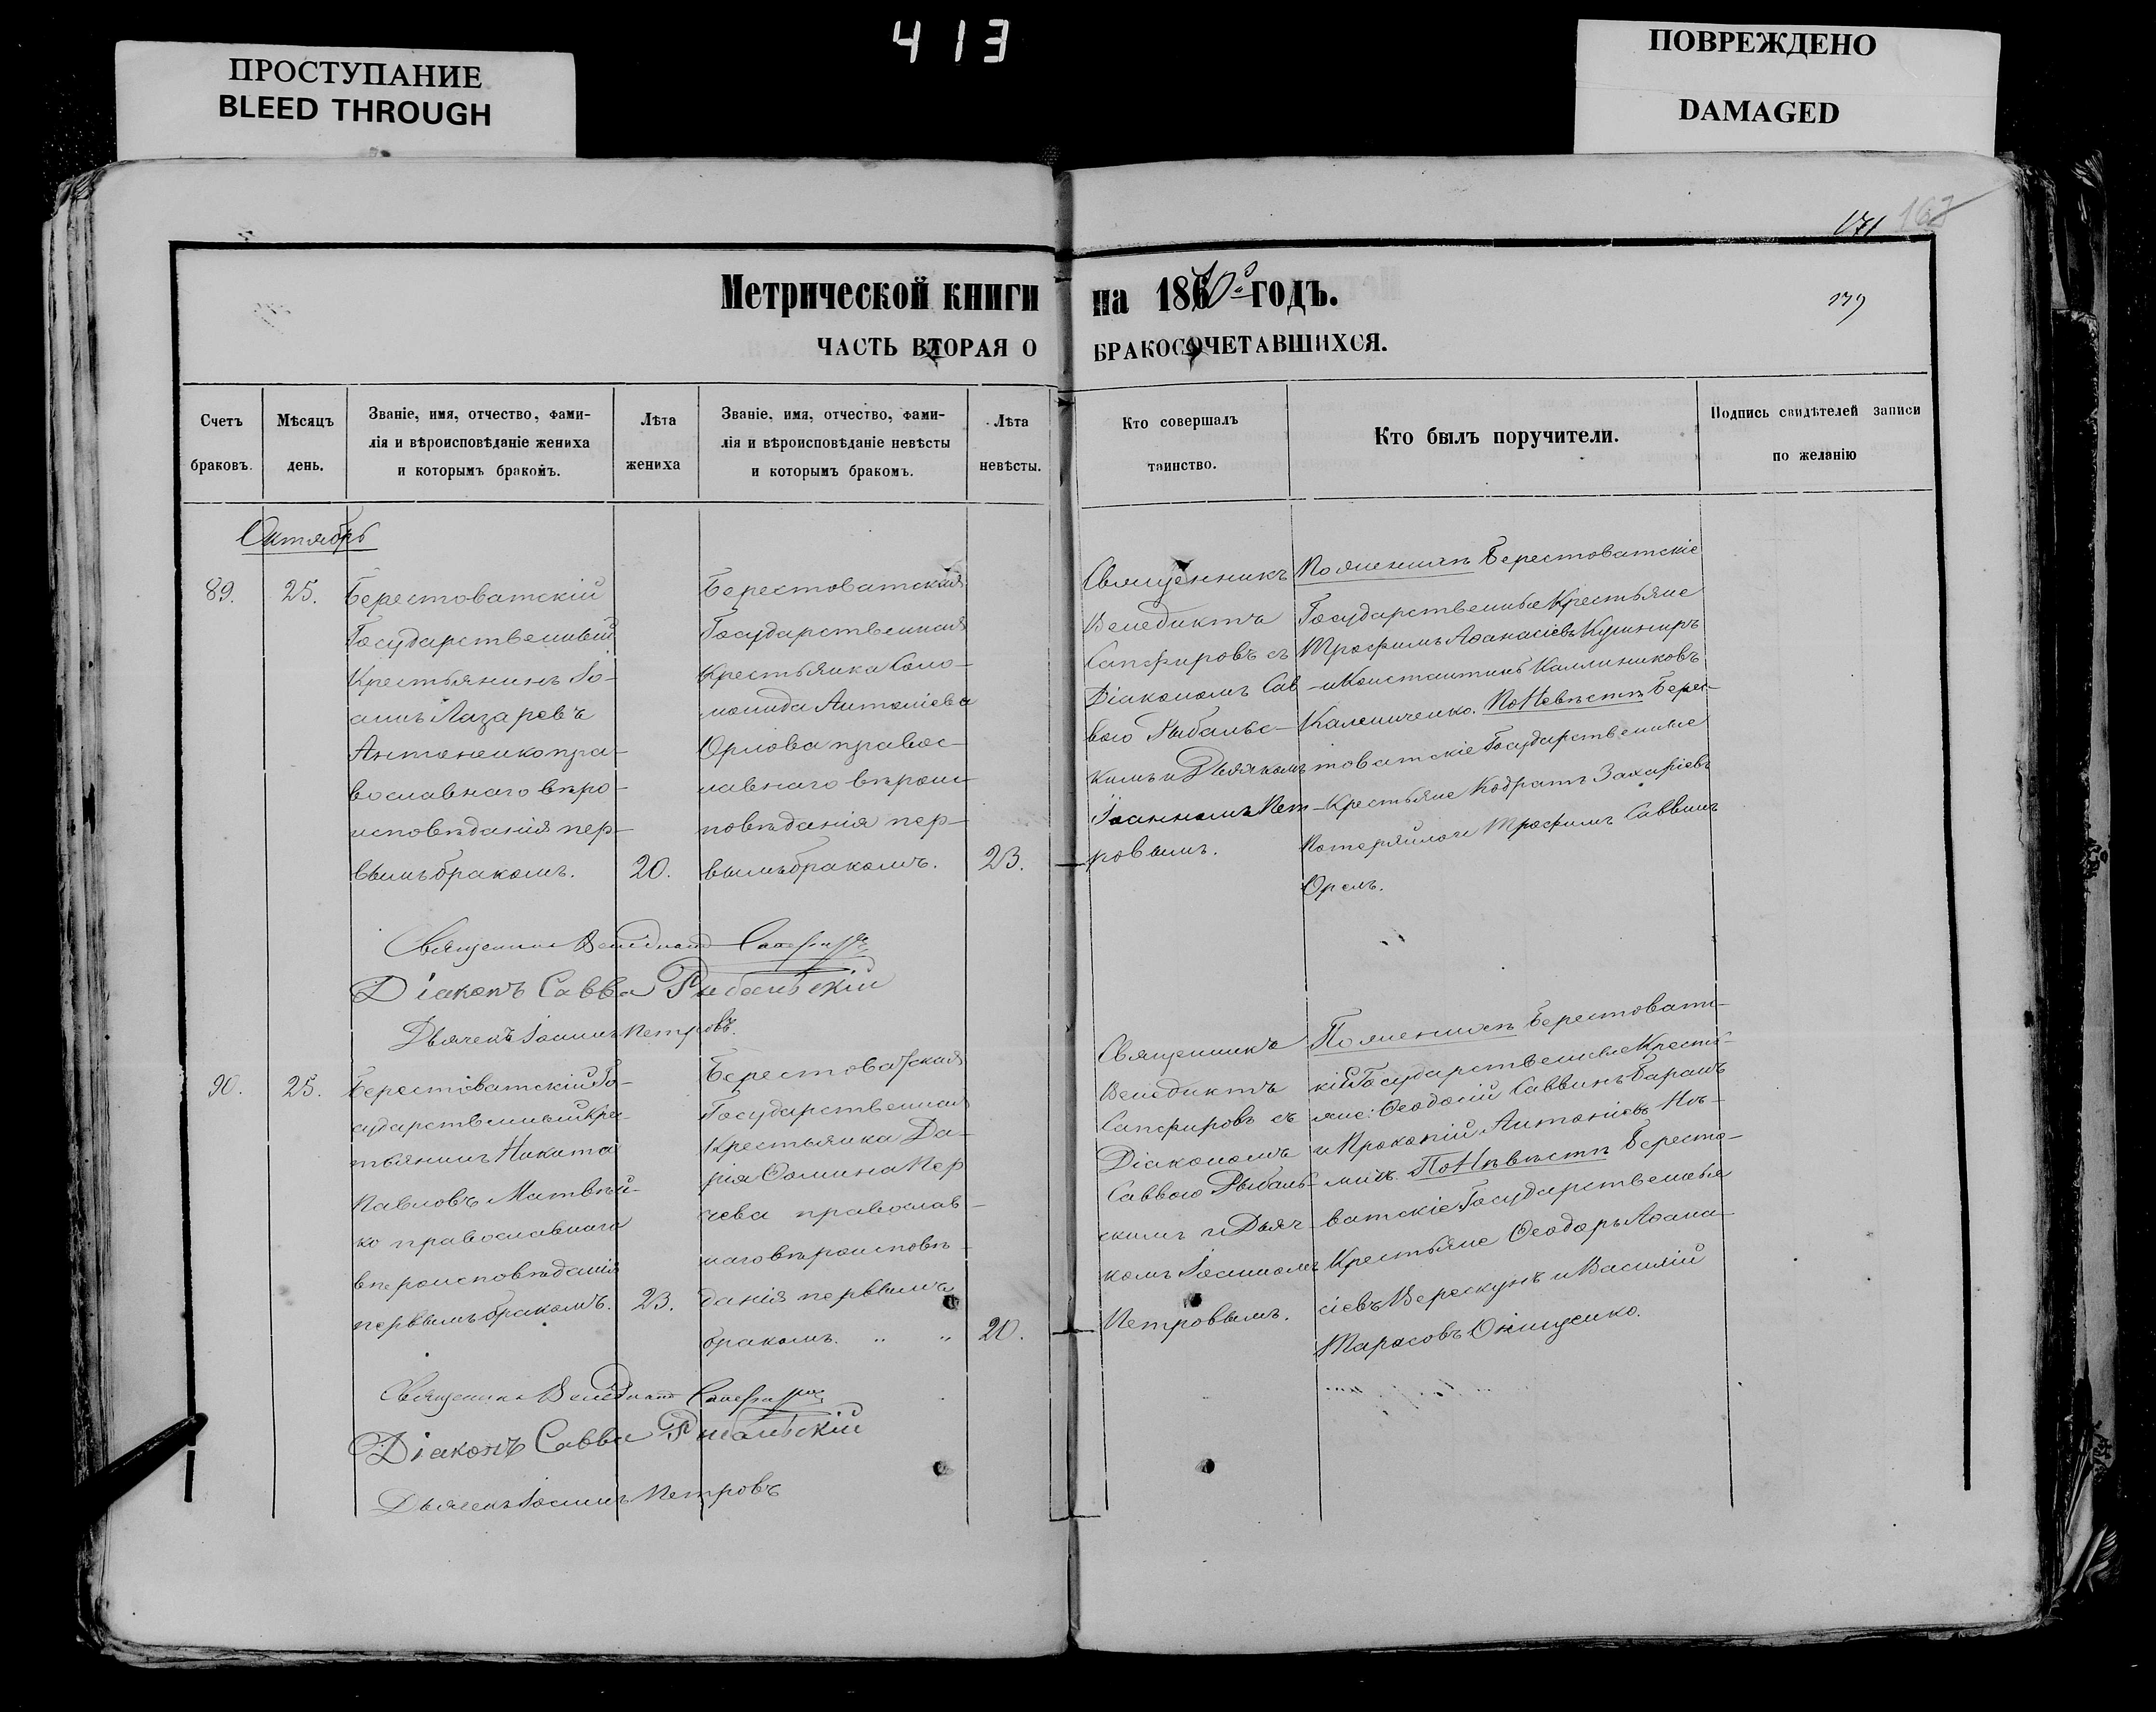 413
ПРОСТУПАНИЕ
BLEED THROUGH
ПОВРЕЖДЕНО
DAMAGED
171
Метрической книги на 1870 годъ.
139
ЧАСТЬ ВТОРАЯ О БРАКОСОЧЕТАВШИХСЯ.
Счетъ
браковъ.
Мѣсяцъ
день.
Званіе, имя, отчество, фами-
лія и вѣроисповѣданіе жениха
и которымъ бракомъ.
Лѣта
жениха
Званіе, имя, отчество, фами-
лія и вѣроисповѣданіе невѣсты
и которымъ бракомъ.
Лѣта
невѣсты.
Кто совершалъ
таинство.
Кто былъ поручители.
Подпись свидѣтелей записи
по желанію
Октябрь
89.
25.
Берестоватскій
Государственный
Крестьянинъ Іо-
аннъ Лазаревъ
Антоненко пра-
вославнаго вѣро-
исповѣданія пер-
вымъ бракомъ.
20.
Берестоватская
Государственная
Крестьянка Соло-
монида Антоніева
Орлова правос-
лавнаго вѣроис-
повѣданія пер-
вымъ бракомъ.
23.
Священникъ
Венедиктъ
Сапфировъ съ
Діакономъ Сав-
вою Рыбальс-
кимъ и Дьячкомъ
Іоанномъ Пет-
ровымъ.
По женихѣ Берестоватскіе
Государственные Крестьяне
Трофимъ Аѳанасіевъ Кушниръ
и Константинъ Каллиниковъ
Калениченко. По Невѣстѣ Берес-
товатскіе Государственные
Крестьяне Кодратъ Захаріевъ
Потеряйло и Трофимъ Саввинъ
Орелъ.
Священникъ Венедиктъ Сапфировъ
Діаконъ Савва Рыбальскій
Дьячекъ Іоаннъ Петровъ.
90.
25.
Берестоватскій Го-
сударственный Крес-
тьянинъ Никита
Павловъ Матвѣй-
ко православнаго
вѣроисповѣданія
первымъ бракомъ.
23.
Берестоватская
Государственная
Крестьянка Да-
рія Ѳомина Пер
чева православ-
наго вѣроисповѣ-
данія первымъ
бракомъ. " "
20.
Священникъ
Венедиктъ
Сапфировъ съ
Діакономъ
Саввою Рыбаль-
скимъ и Дьяч-
комъ Іоанномъ
Петровымъ.
По женихѣ Берестоват-
кіе Государственные Кресть-
яне: Ѳеодосій Саввинъ Баранъ
и Прокопій Антоніевъ
По Невѣстѣ Бересто-
ватскіе Государственные
Крестьяне Ѳеодоръ Аѳана-
сіевъ Верескунъ и Василій
Тарасовъ Онищенко.
Священникъ Венедиктъ Сапфировъ
Діаконъ Савва Рыбальскій
Дьячекъ Іоаннъ Петровъ